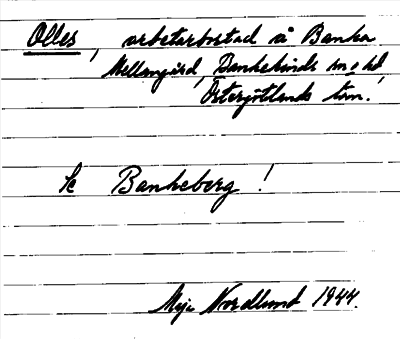 Olles, arbetarbostad å Banka
Mellangård, Bankekinds sn o hd
Östergötlands län.
Se Bankeberg!
Maja Nordlund 1944.